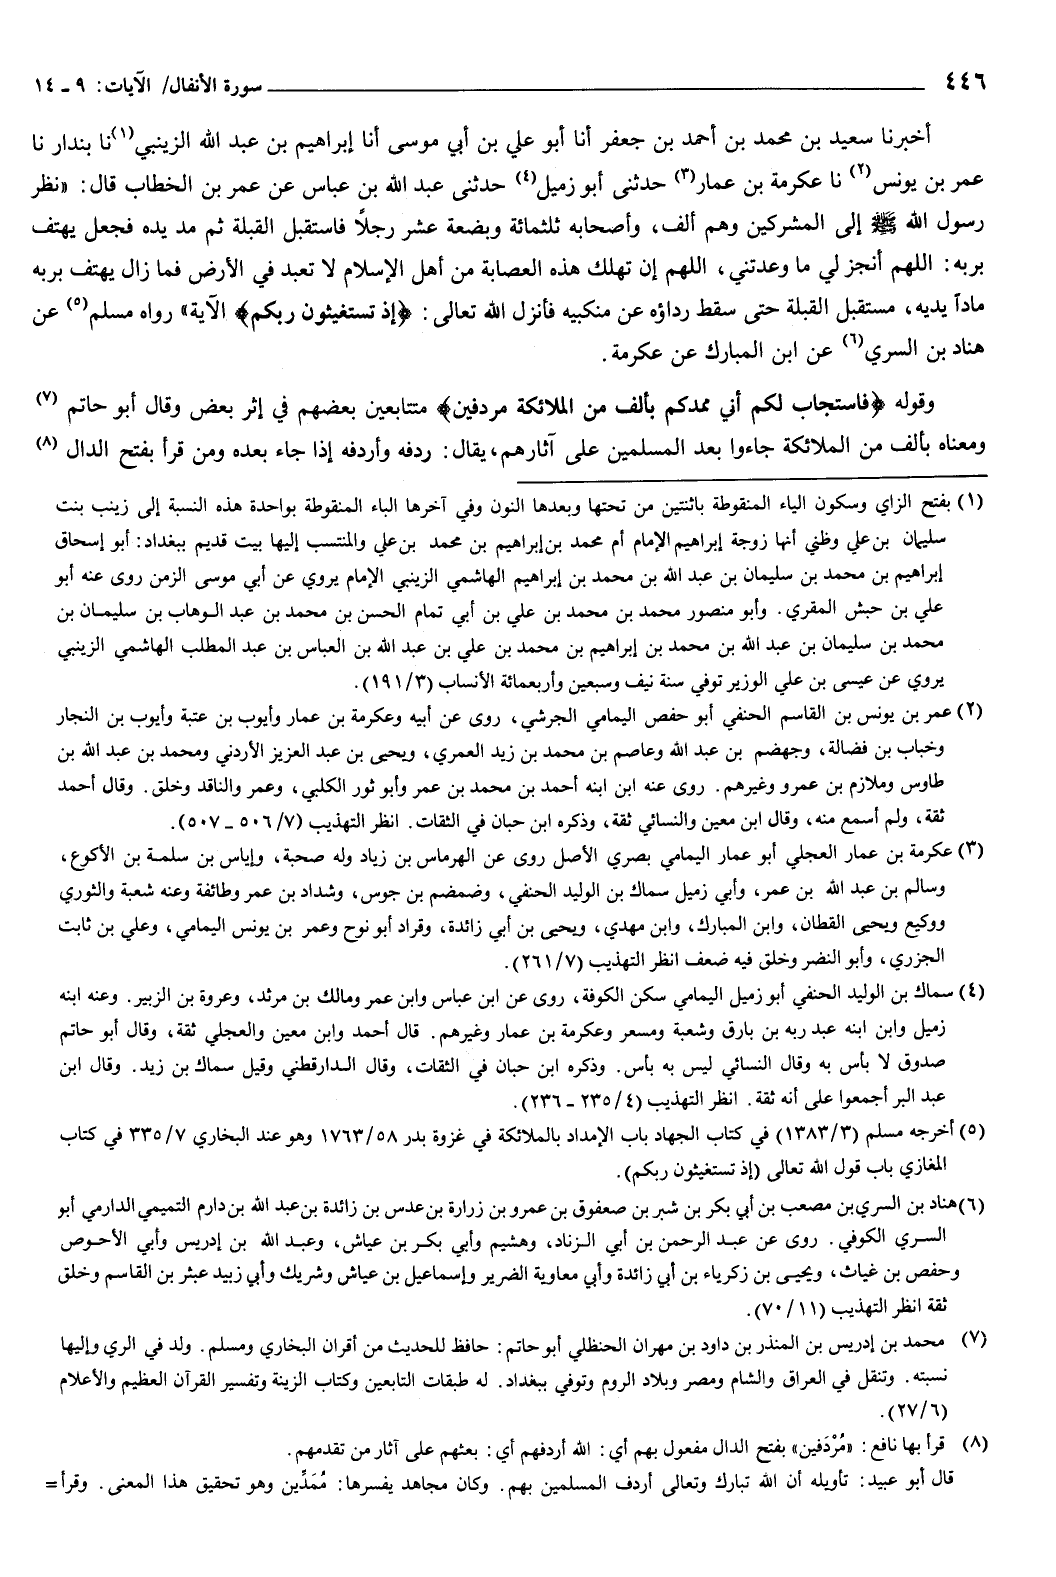 ٤٤٦ سورة الأنفال/ الآيات: ٩ ـ ١٤
أخبرنا سعيد بن محمد بن أحمد بن جعفر أنا أبو علي بن أبي موسى أنا إبراهيم بن عبد الله الزينبي(١)نا بندار نا
عمر بن يونس(٢) نا عكرمة بن عمار(٣) حدثني أبو زميل(٤) حدثني عبد الله بن عباس عن عمر بن الخطاب قال: «نظر
رسول الله ﷺ إلى المشركين وهم ألف، وأصحابه ثلثمائة وبضعة عشر رجلاً فاستقبل القبلة ثم مد يده فجعل يهتف
بربه: اللهم أنجز لي ما وعدتني، اللهم إن تهلك هذه العصابة من أهل الإسلام لا تعبد في الأرض فما زال يهتف بربه
مادآ يديه، مستقبل القبلة حتى سقط رداؤه عن منكبيه فأنزل الله تعالى: ﴿إذ تستغيثون ربكم﴾ الآية» رواه مسلم(٥) عن
هناد بن السري(٦) عن ابن المبارك عن عكرمة.
وقوله ﴿فاستجاب لكم أني ممدكم بألف من الملائكة مردفين﴾ متتابعين بعضهم في إثر بعض وقال أبو حاتم (٧)
ومعناه بألف من الملائكة جاءوا بعد المسلمين على آثارهم، يقال: ردفه وأردفه إذا جاء بعده ومن قرأ بفتح الدال (٨)
(١) بفتح الزاي وسكون الياء المنقوطة باثنتين من تحتها وبعدها النون وفي آخرها الباء المنقوطة بواحدة هذه النسبة إلى زينب بنت
سليمان بن علي وظني أنها زوجة إبراهيم الإمام أم محمد بن إبراهيم بن محمد بن علي والمنتسب إليها بيت قديم ببغداد: أبو إسحاق
إبراهيم بن محمد بن سليمان بن عبد الله بن محمد بن إبراهيم الهاشمي الزينبي الإمام يروي عن أبي موسى الزمن روى عنه أبو
علي بن حبش المقري. وأبو منصور محمد بن محمد بن علي بن أبي تمام الحسن بن محمد بن عبد الوهاب بن سليمان بن
محمد بن سليمان بن عبد الله بن محمد بن إبراهيم بن محمد بن علي بن عبد الله بن العباس بن عبد المطلب الهاشمي الزينبي
يروي عن عيسى بن علي الوزير توفي سنة نيف وسبعين وأربعمائة الأنساب (١٩١/٣).
(٢) عمر بن يونس بن القاسم الحنفي أبو حفص اليمامي الجرشي، روى عن أبيه وعكرمة بن عمار وأيوب بن عتبة وأيوب بن النجار
وخباب بن فضالة، وجهضم بن عبد الله وعاصم بن محمد بن زيد العمري، ويحيى بن عبد العزيز الأردني ومحمد بن عبد الله بن
طاوس وملازم بن عمرو وغيرهم. روى عنه ابن ابنه أحمد بن محمد بن عمر وأبو ثور الكلبي، وعمر والناقد وخلق. وقال أحمد
ثقة، ولم أسمع منه، وقال ابن معين والنسائي ثقة، وذكره ابن حبان في الثقات. انظر التهذيب (٥٠٦/٧ ـ ٥٠٧).
(٣) عكرمة بن عمار العجلي أبو عمار اليمامي بصري الأصل روى عن الهرماس بن زياد وله صحبة، وإياس بن سلمة بن الأكوع،
وسالم بن عبد الله بن عمر، وأبي زميل سماك بن الوليد الحنفي، وضمضم بن جوس، وشداد بن عمر وطائفة وعنه شعبة والثوري
ووكيع ويحيى القطان، وابن المبارك، وابن مهدي، ويحيى بن أبي زائدة، وقراد أبو نوح وعمر بن يونس اليمامي، وعلي بن ثابت
الجزري، وأبو النضر وخلق فيه ضعف انظر التهذيب (٢٦١/٧).
(٤) سماك بن الوليد الحنفي أبو زميل اليمامي سكن الكوفة، روى عن ابن عباس وابن عمر ومالك بن مرثد، وعروة بن الزبير. وعنه ابنه
زميل وابن ابنه عبد ربه بن بارق وشعبة ومسعر وعكرمة بن عمار وغيرهم. قال أحمد وابن معين والعجلي ثقة، وقال أبو حاتم
صدوق لا بأس به وقال النسائي ليس به بأس. وذكره ابن حبان في الثقات، وقال الدارقطني وقيل سماك بن زيد. وقال ابن
عبد البر أجمعوا على أنه ثقة. انظر التهذيب (٢٣٥/٤ ـ ٢٣٦).
(٥) أخرجه مسلم (١٣٨٣/٣) في كتاب الجهاد باب الإمداد بالملائكة في غزوة بدر ١٧٦٣/٥٨ وهو عند البخاري ٣٣٥/٧ في كتاب
المغازي باب قول الله تعالى (إذ تستغيثون ربكم).
(٦) هناد بن السري بن مصعب بن أبي بكر بن شبر بن صعفوق بن عمرو بن زرارة بن عدس بن زائدة بن عبد الله بن دارم التميمي الدارمي أبو
السري الكوفي. روى عن عبد الرحمن بن أبي الزناد، وهشيم وأبي بكر بن عياش، وعبد الله بن إدريس وأبي الأحوص
وحفص بن غياث، ويحيى بن زكرياء بن أبي زائدة وأبي معاوية الضرير وإسماعيل بن عياش وشريك وأبي زبيد عبثر بن القاسم وخلق
ثقة انظر التهذيب (٧٠/١١).
(٧) محمد بن إدريس بن المنذر بن داود بن مهران الحنظلي أبو حاتم: حافظ للحديث من أقران البخاري ومسلم. ولد في الري وإليها
نسبته. وتنقل في العراق والشام ومصر وبلاد الروم وتوفي ببغداد. له طبقات التابعين وكتاب الزينة وتفسير القرآن العظيم والأعلام
(٢٧/٦).
(٨) قرأ بها نافع: «مُرْدَفين» بفتح الدال مفعول بهم أي: الله أردفهم أي: بعثهم على آثار من تقدمهم.
قال أبو عبيد: تأويله أن الله تبارك وتعالى أردف المسلمين بهم. وكان مجاهد يفسرها: مُمَدِّين وهو تحقيق هذا المعنى. وقرأ=